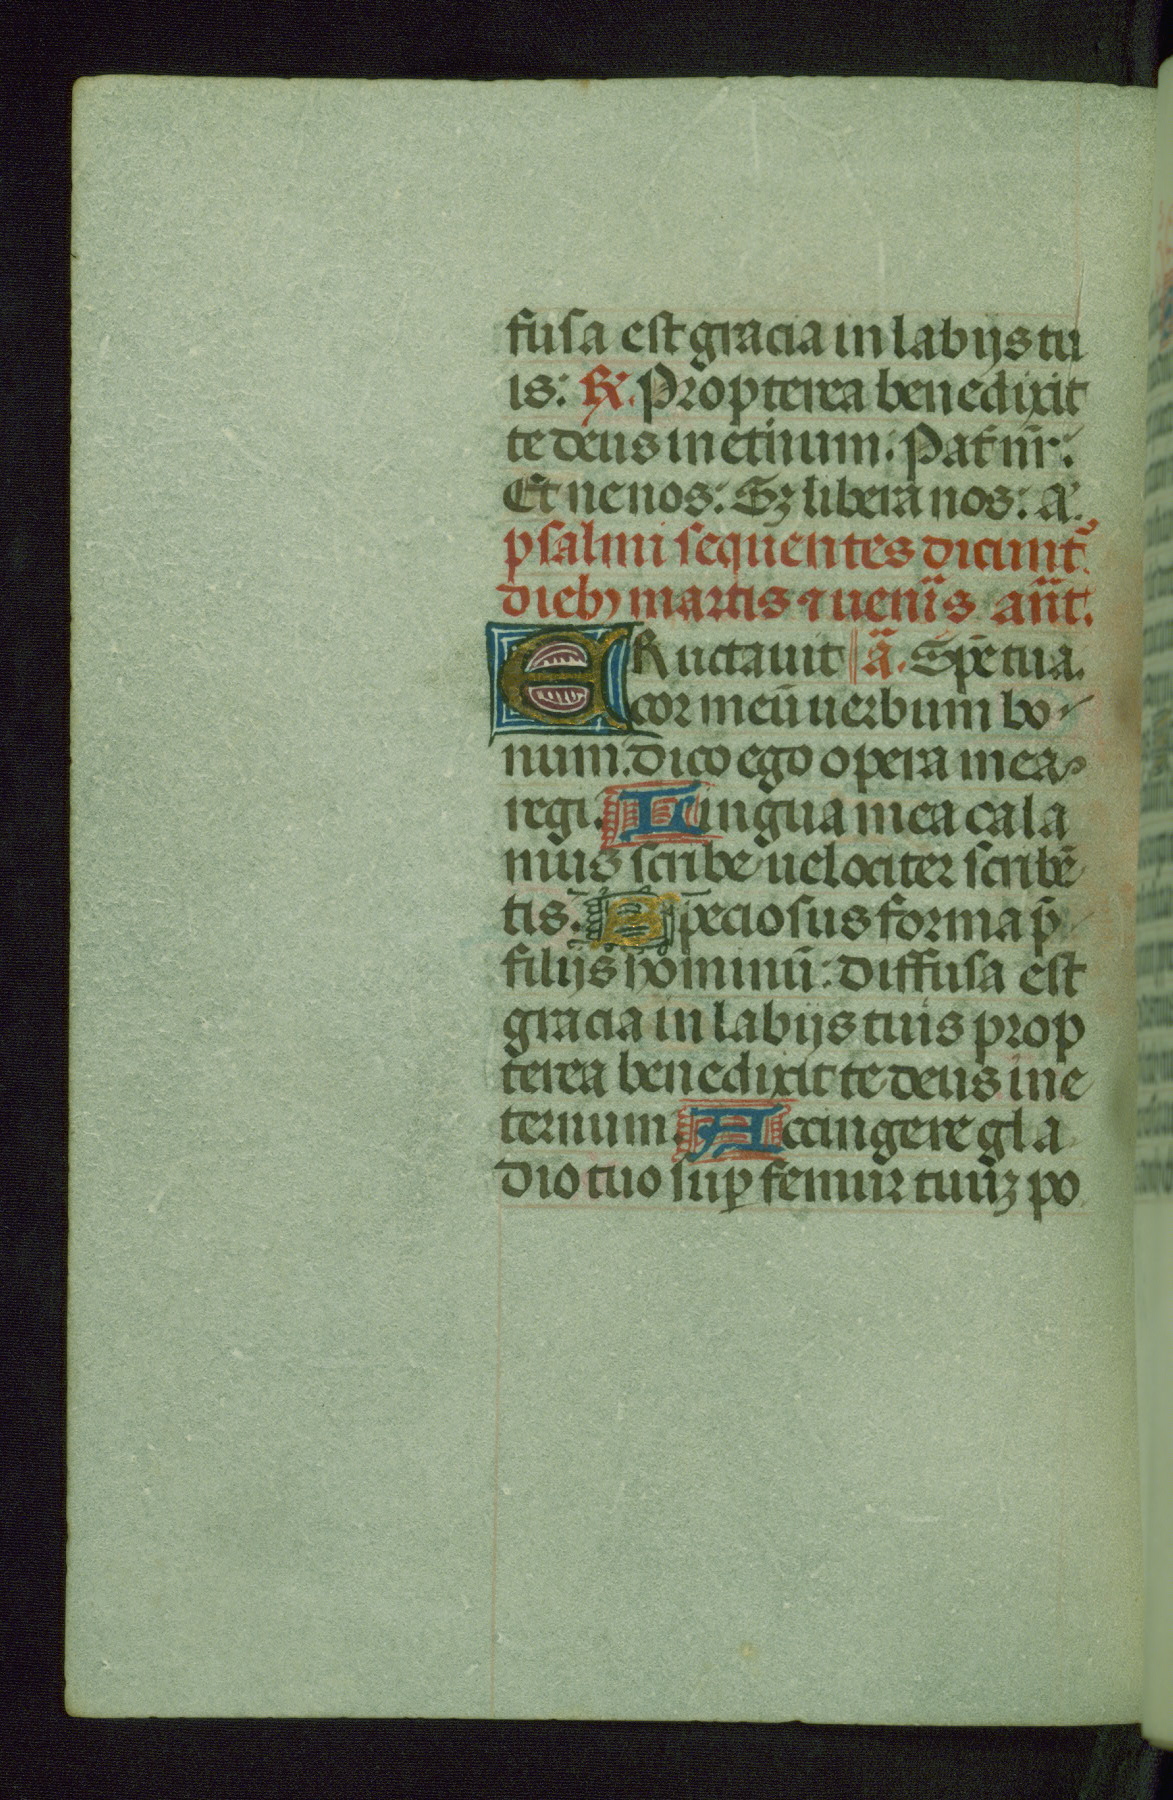 fusa est gracia in labijs tu
is: R̃. Propterea benedixit
te deus in et̃num. Pat̃ nr̃:
Et ne nos: Sꝫ libera nos: a͂.
psalmi sequentes dicunt᷑
diebꝫ martis ⁊ uen̄is an̄t.
ERuctauit ã. Spē tua.
cor meū uerbum bo
num. dico ego opera mea
regi. Lingua mea cala
mus scribe uelociter scribē
tis. Speciosus forma p̄
filijs hominū: diffusa est
gracia in labijs tuis prop
terea benedixit te deus in e
ternum. Accingere gla
dio tuo suꝑ femur tuūꝫ po